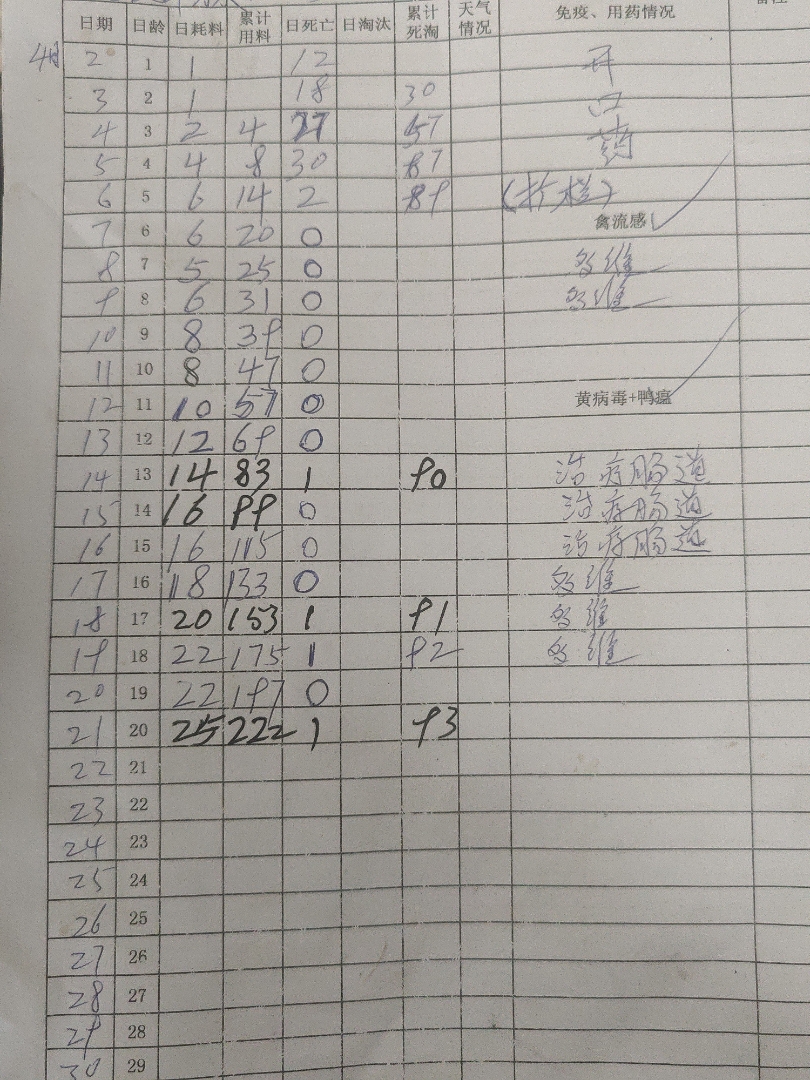 日期 日龄 日耗料 累计用料 日死亡 日淘汰 累计死淘 天气情况 免疫、用药情况
4月 2 1 1 12 开
3 2 1 18 30 口
4 3 2 4 27 57 药
5 4 4 8 30 87
6 5 6 14 2 89 (拆栏)
7 6 6 20 0 禽流感
8 7 5 25 0 多维
9 8 6 31 0 多维
10 9 8 39 0
11 10 8 47 0
12 11 10 57 0 黄病毒+鸭瘟
13 12 12 69 0
14 13 14 83 1 90 治疗肠道
15 14 16 99 0 治疗肠道
16 15 16 115 0 治疗肠道
17 16 18 133 0 多维
18 17 20 153 1 91 多维
19 18 22 175 1 92 多维
20 19 22 197 0
21 20 25 222 1 93
22 21
23 22
24 23
25 24
26 25
27 26
28 27
29 28
30 29